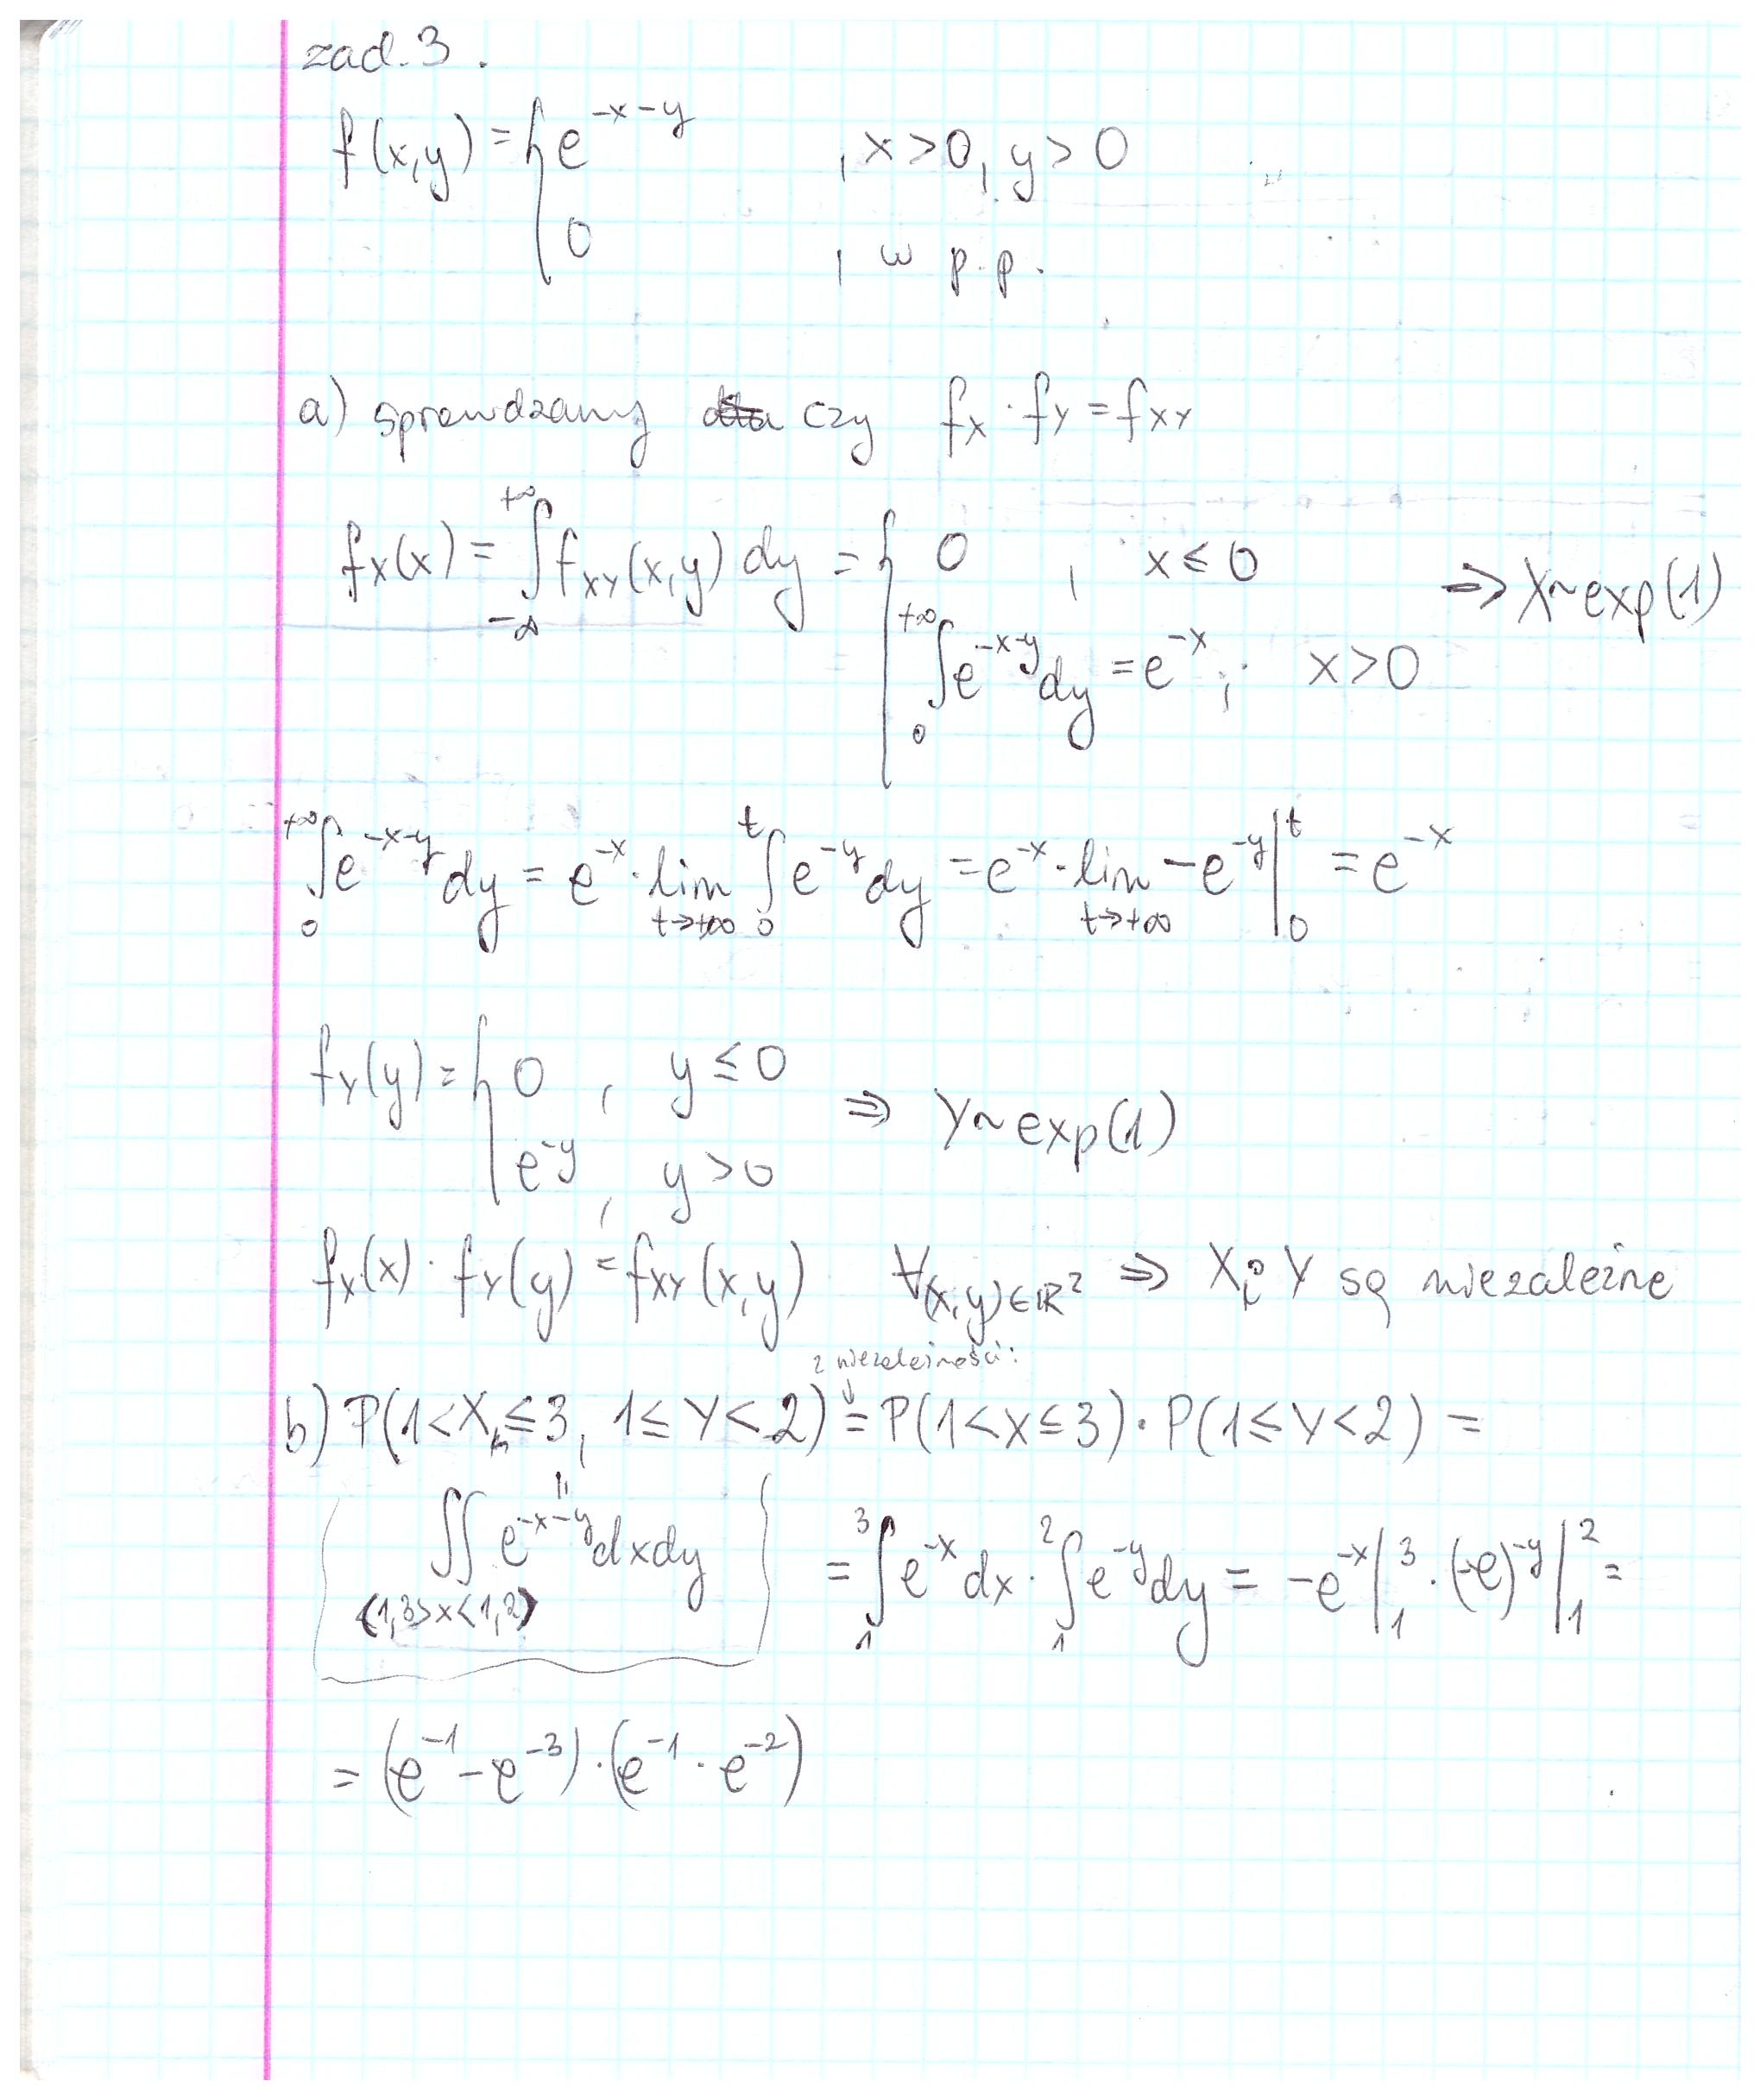 zad. 3.
f(x,y) = { e^{-x-y} , x>0, y>0
0 , w p.p.
a) sprawdzamy czy f_X · f_Y = f_{XY}
f_X(x) = ∫_{-∞}^{+∞} f_{XY}(x,y) dy = { 0 , x ≤ 0 ⇒ X~exp(1)
∫_0^{+∞} e^{-x-y} dy = e^{-x} , x>0
∫_0^{+∞} e^{-x-y} dy = e^{-x} · lim_{t→+∞} ∫_0^t e^{-y} dy = e^{-x} · lim_{t→+∞} -e^{-y} |_0^t = e^{-x}
f_Y(y) = { 0 , y ≤ 0 ⇒ Y~exp(1)
e^{-y} , y>0
f_X(x) · f_Y(y) = f_{XY}(x,y) ∀_{(x,y)∈ℝ²} ⇒ X i Y są niezależne
z niezależności:
b) P(1<X≤3, 1≤Y<2) = P(1<X≤3) · P(1≤Y<2) =
∬_{(1,3>×<1,2)} e^{-x-y} dxdy = ∫_1^3 e^{-x} dx · ∫_1^2 e^{-y} dy = -e^{-x} |_1^3 · (-e)^{-y} |_1^2 =
= (e^{-1} - e^{-3}) · (e^{-1} · e^{-2})